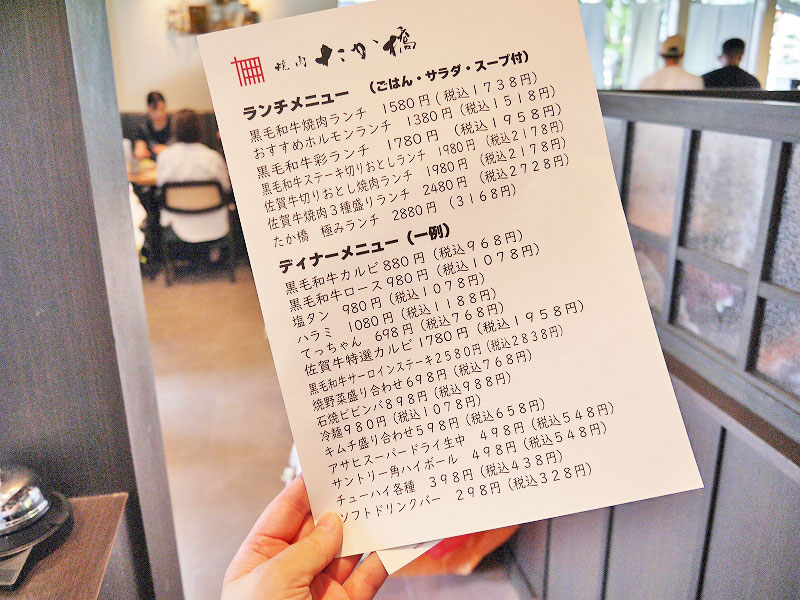 焼肉 たか橋
ランチメニュー （ごはん・サラダ・スープ付）
黒毛和牛焼肉ランチ 1580円（税込1738円）
おすすめホルモンランチ 1380円（税込1518円）
黒毛和牛彩ランチ 1780円（税込1958円）
黒毛和牛ステーキ切りおとしランチ 1980円（税込2178円）
佐賀牛切りおとし焼肉ランチ 1980円（税込2178円）
佐賀牛焼肉3種盛りランチ 2480円（税込2728円）
たか橋 極みランチ 2880円（3168円）
ディナーメニュー（一例）
黒毛和牛カルビ 880円（税込968円）
黒毛和牛ロース 980円（税込1078円）
塩タン 980円（税込1078円）
ハラミ 1080円（税込1188円）
てっちゃん 698円（税込768円）
佐賀牛特選カルビ 1780円（税込1958円）
黒毛和牛サーロインステーキ2580円（税込2838円）
焼野菜盛り合わせ698円（税込768円）
石焼ビビンバ898円（税込988円）
冷麺980円（税込1078円）
キムチ盛り合わせ598円（税込658円）
アサヒスーパードライ生中 498円（税込548円）
サントリー角ハイボール 498円（税込548円）
チューハイ各種 398円（税込438円）
ソフトドリンクバー 298円（税込328円）